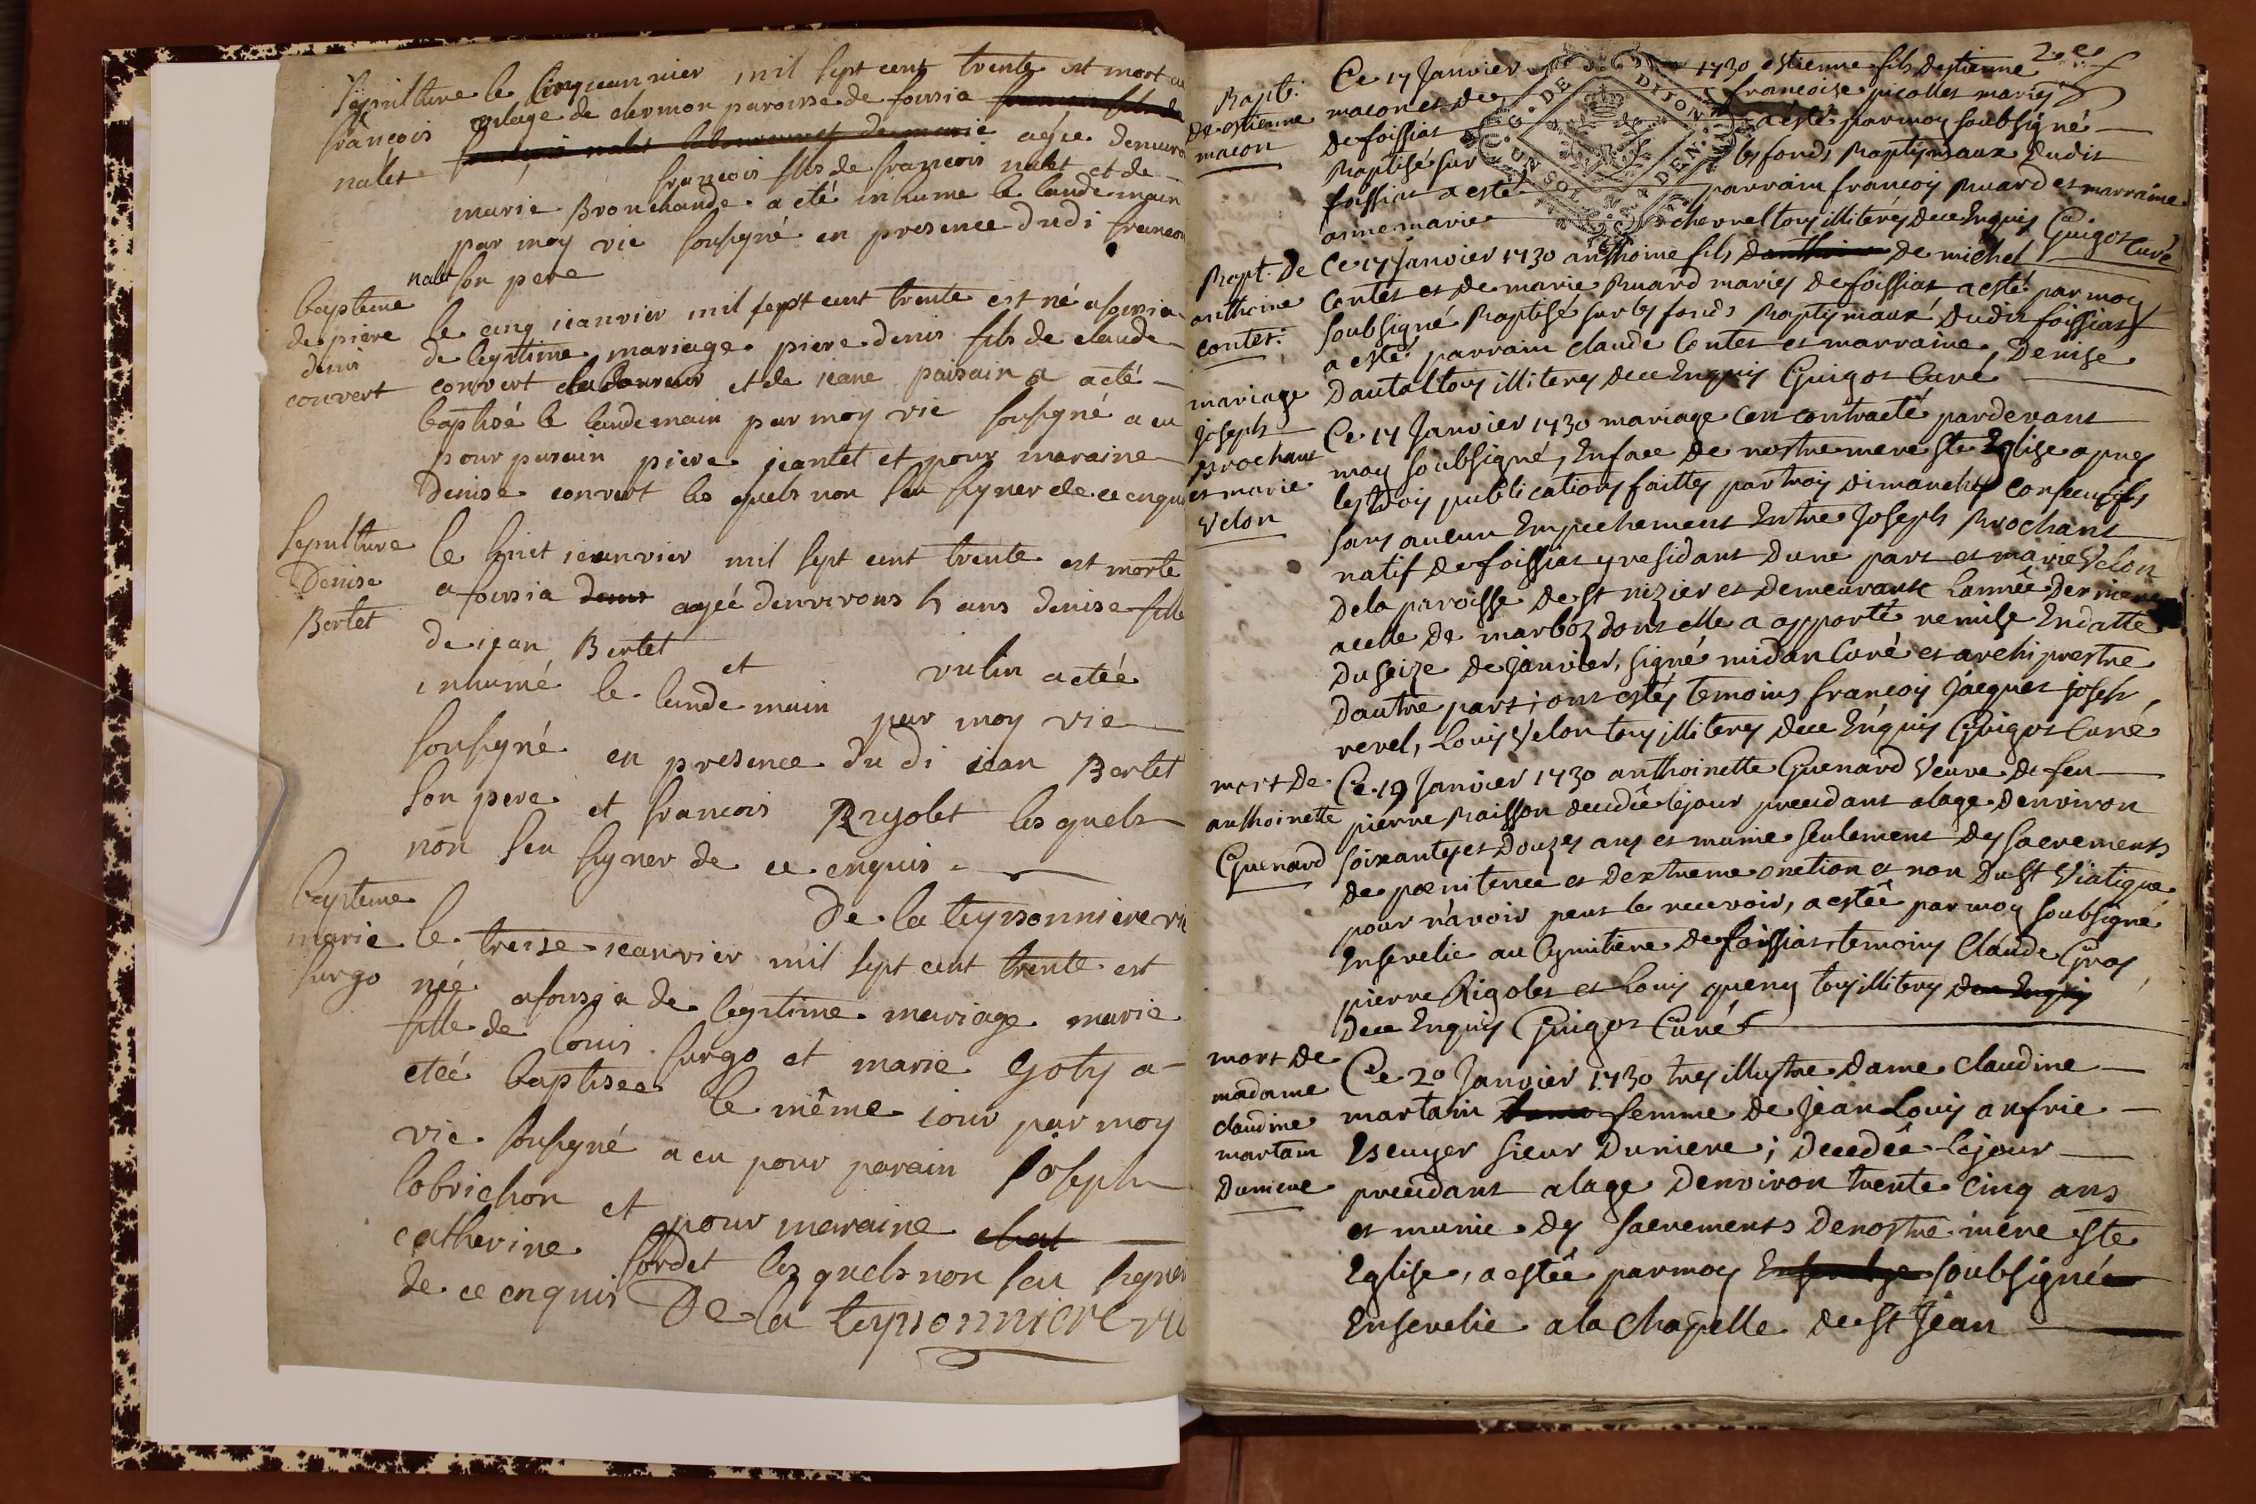 Sepulture le Cinq jeanvier mil sept cent trente est mort au
de
françois
village de clermon paroisse de foisia françois fils de
nalet
agée
françois fils de françois nalet et de
marie Brouchande a eté inhume le lande main
par moy vic sousigné en presence dudi francois
nalet son pere
bapteme
de piere
denis
convert
le cinq ieanvier mil sept cent trente est né afoisia
de legitime mariage piere denis fils de claude
convert laboureur et de ieane paisain a aeté
baptisé le landemain par moy vic sousigné a eu
pour parain piere jeantet et pour maraine
Denise convert les quels non seu signer de ce enquis
Sepulture
Denise
Bertet
le huict ieanvier mil sept cent trente est morte
a foisia agée denvirons 5 ans denise fille
de jean Bertet
et vulin aetée
inhumé le lande main par moy vic
sousigné en presence du di iean Bertet
son pere et francois Rigolet les quels
non seu signer de ce enquis
De la teyssonniere vic
bapteme
marie
surgo
le treize ieanvier mil sept cent trente est
née afoisia de legitime mariage marie
fille de louis surgo et marie Goty a
etée baptisee le même iour par moy
vic sousigné a eu pour parain Joseph
lobrichon et pour maraine
catherine sordet les quels non seu signer
de ce enquis De la teyssonniere vic
2e
Bapt:
de estienne
macon
Ce 17 Janvier 1730 estienne fils destienne
macon et de francoise picollet mariés
de foissiat a esté par moy soubsigné
Baptisé sur les fonds Baptismaux dudit
foissiat a esté parrain françois Buard et marraine
anne marie chevrel tous illiterés de ce Enquis Guigot Curé
DE DIJON
Bapt. De
anthoine
contet:
Ce 17 Janvier 1730 anthoine fils danthoine de michel
Contet et de marie Buard mariés de foissiat a esté par moy
soubsigné Baptisé sur les fonds Baptismaux dudit foissiat
a esté parrain claude Contet et marraine, Denise
Dautal tous illiterés de ce Enquis Guigot Curé
mariage
joseph
Brochant
et marie
Velon
Ce 17 Janvier 1730 mariage est contracté pardevant
moy soubsigné, En face de nostre mere Ste Eglise apres
les trois publications faittes par trois dimanches consecutifs
sans aucun Empechement Entre Joseph Brochant
natif de foissiat y residant d'une part et marie Velon
de la paroisse de St nizier et demeurant l'année derniere
a celle de marboz dont elle a apporté remise En datte
du seize de janvier, signé midan Curé et archiprestre
d'autre part; ont estés temoins françois Jacquet joseph
revel, Louis Velon tous illiterés de ce Enquis Guigot Curé
mort de
anthoinette
Guenard
Ce 19 Janvier 1730 anthoinette Guenard Veuve de feu
pierre Raisson decedée le jour precedant a lage denviron
soixantes et douzes ans et munie seulement des sacrements
de pœnitence et dextreme onction et non du St Viatique
pour n'avoir peut le recevoir, a estée par moy soubsigné
Ensevelie au Cymitiere de foissiat, temoins Claude Gros
pierre Rigolet et Louis queny tous illiterés de ce Enquis
de ce Enquis Guigot Curé
mort de
madame
claudine
martain
Duniere
Ce 20 Janvier 1730 tres illustre Dame claudine
martain femme de Jean Louis anfrie
Escuyer sieur Duniere; decedée le jour
precedant a lage denviron trente cinq ans
et munie des sacrements de nostre mere Ste
Eglise, a estée par moy soubsigné
Ensevelie a la chapelle de St Jean